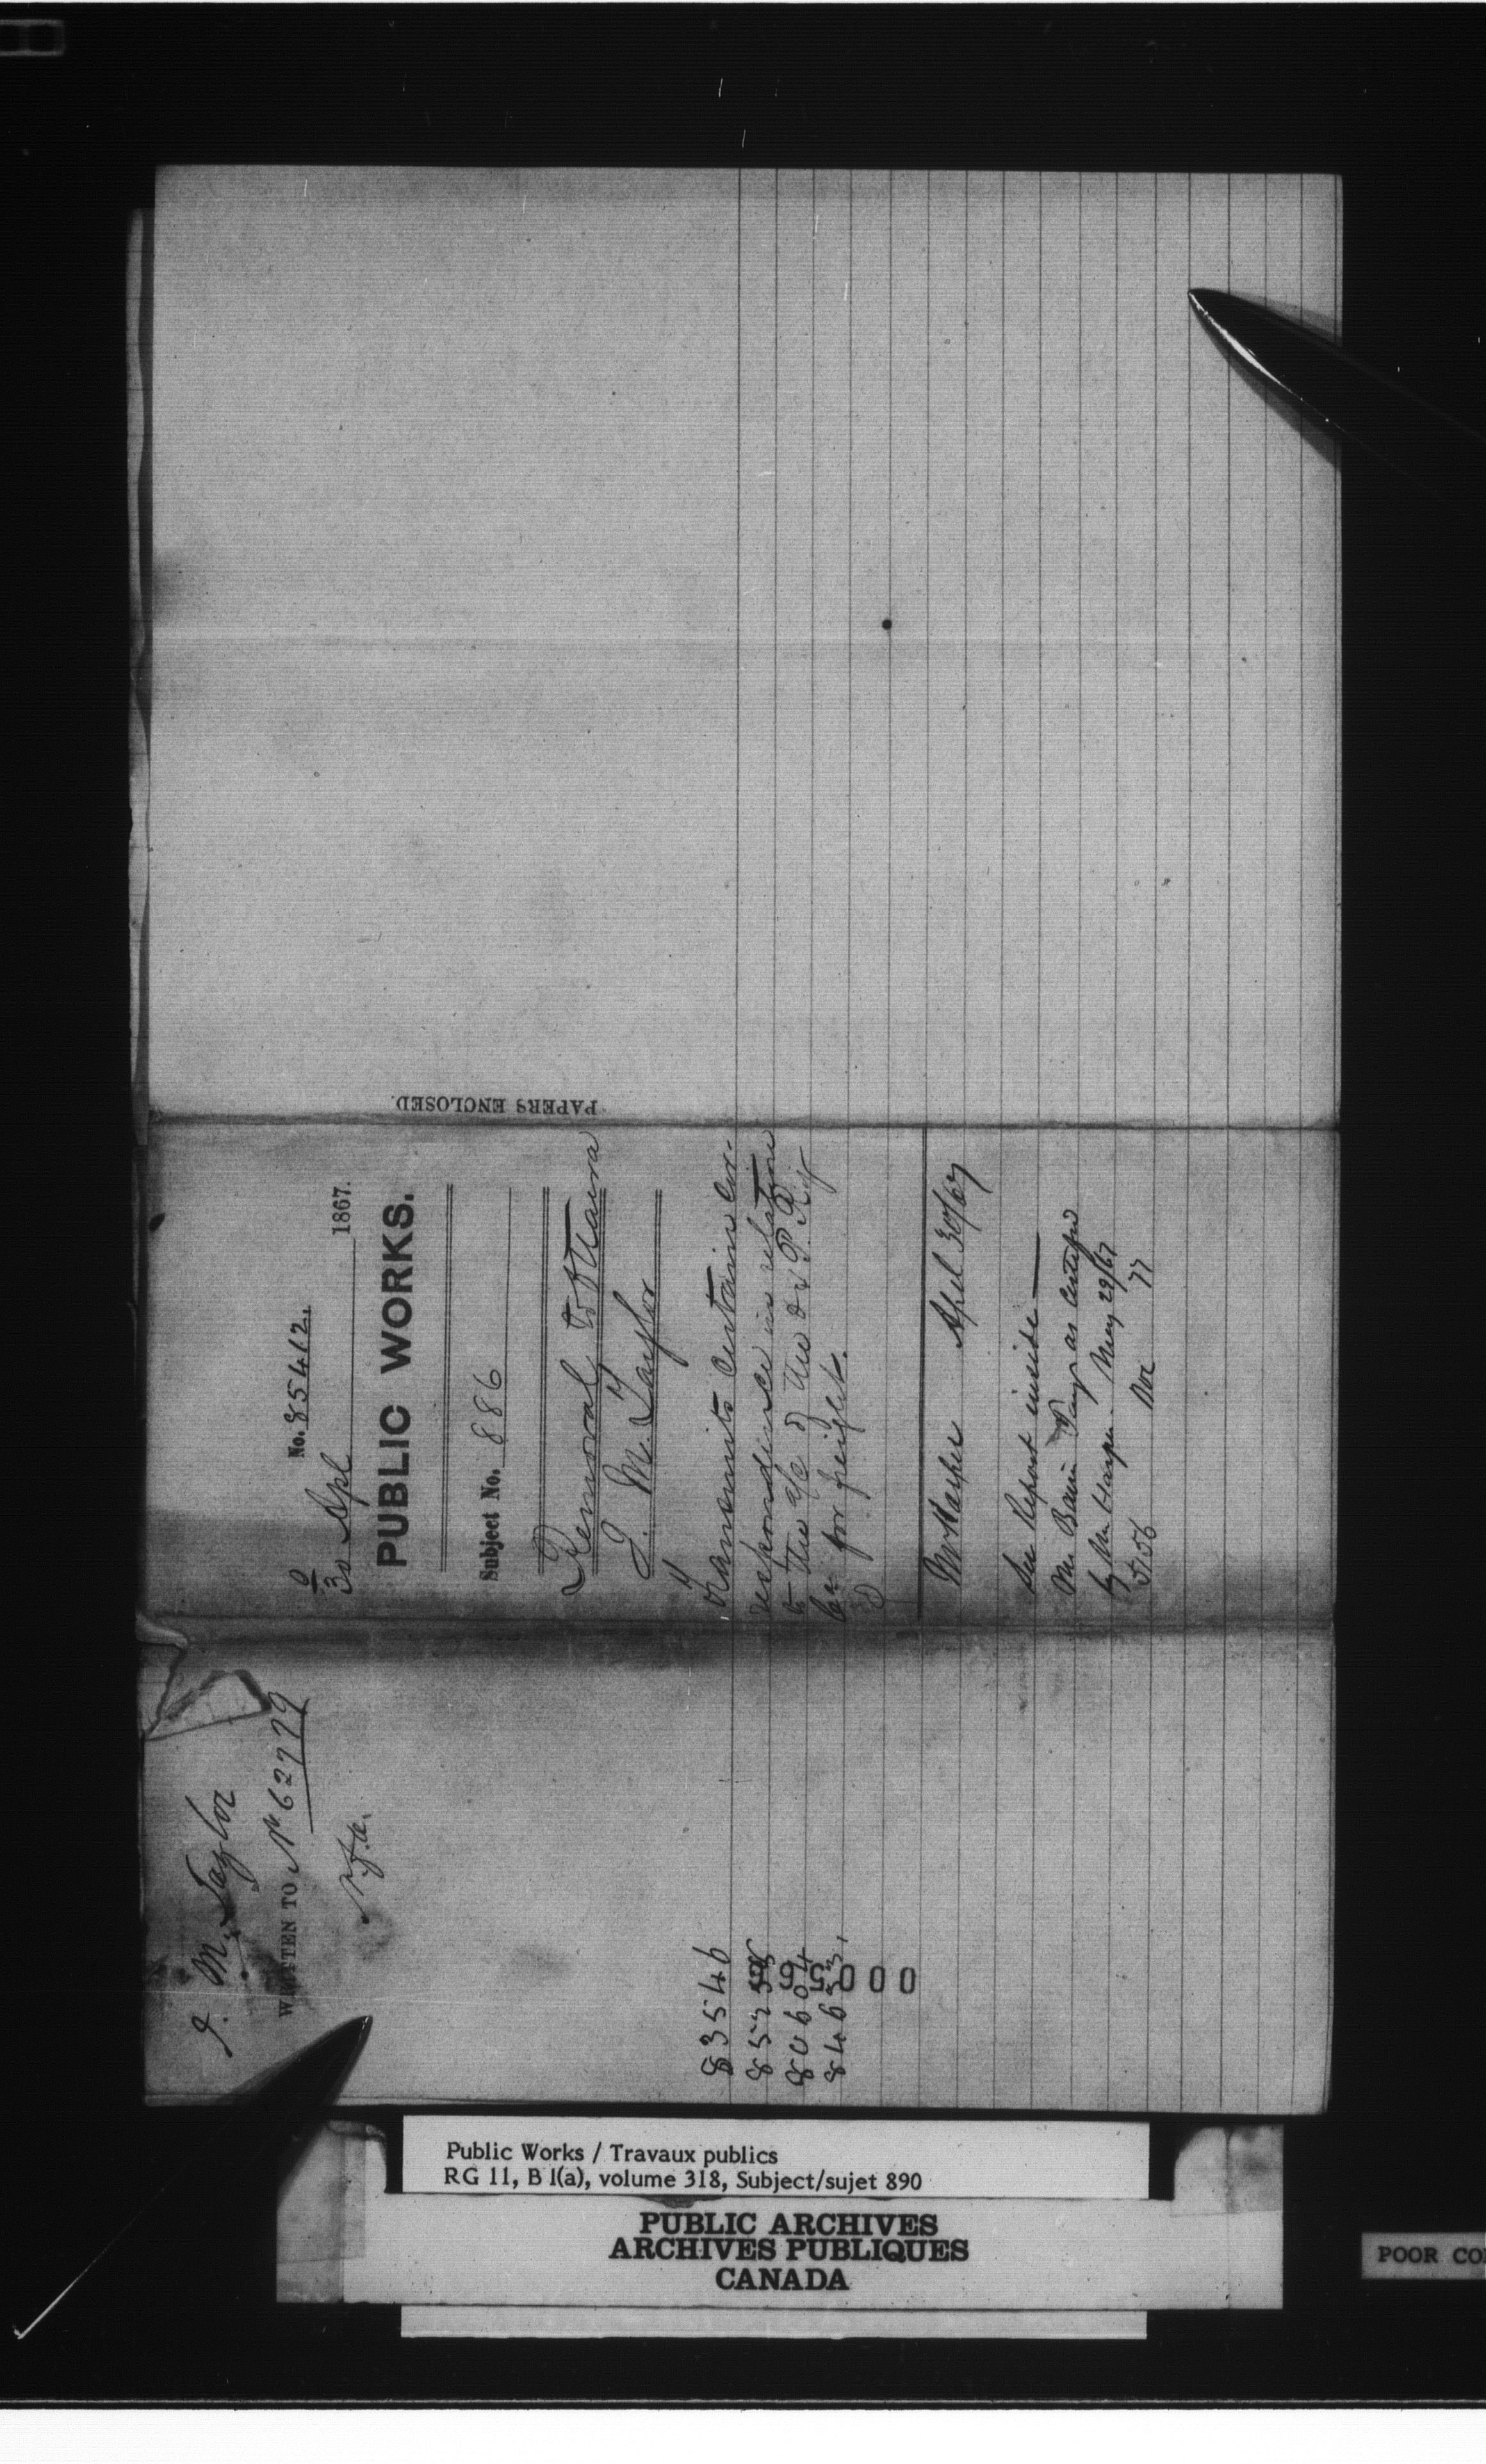 J. M. Taylor
WRITTEN TO No 62779
N.f.a.
83546
80604
84633
No. 85412.
30 Apl 1867.
PUBLIC WORKS.
Subject No. 886
Removal to Ottawa
J. M. Taylor
Transmits certain Cor-
respondence in relation
to the a/c of the O & P. R. y
Co for freight.
Mr Harper April 30/67
See Report inside
Mr Baine Pay as certified
by Mr Harper. May 29/67
77
PAPERS ENCLOSED.
Public Works / Travaux publics
RG 11, B 1(a), volume 318, Subject/sujet 890
PUBLIC ARCHIVES
ARCHIVES PUBLIQUES
CANADA
POOR CO